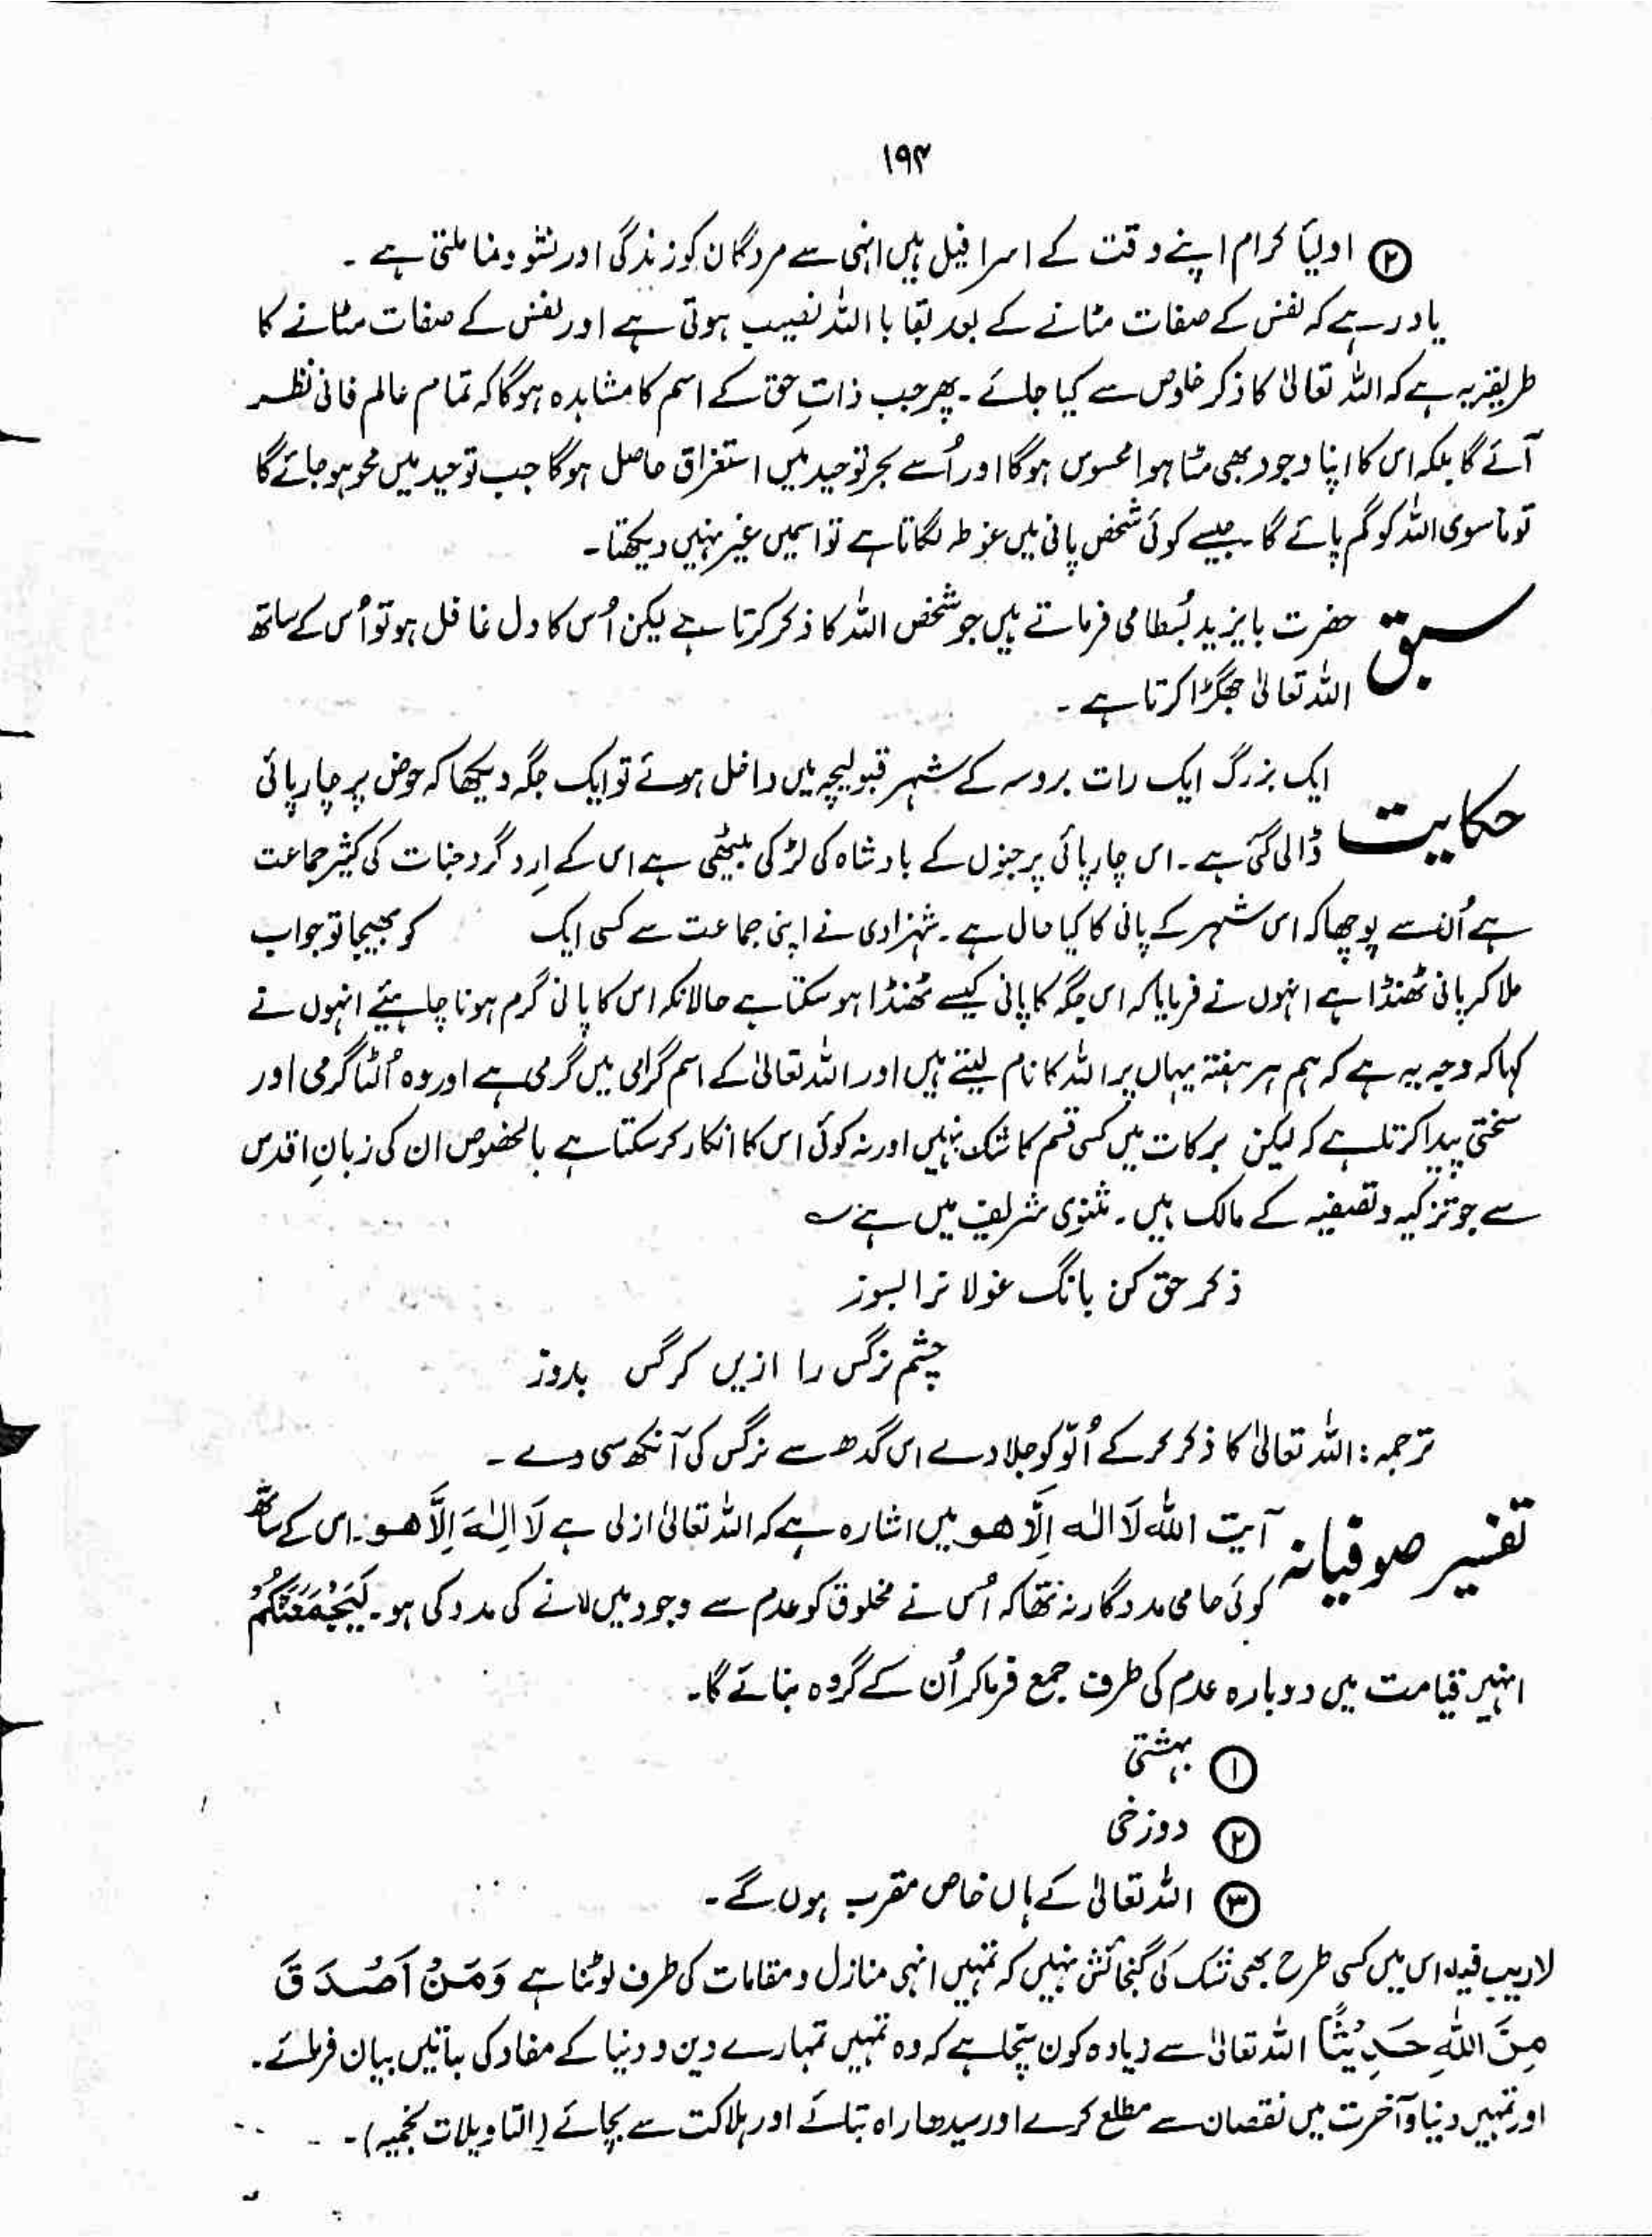 ۱۹۴
② اولیأ کرام اپنے وقت کے اسرافیل ہیں انہی سے مردگان کو زندگی اور نشو و نما ملتی ہے ۔
یاد رہے کہ نفس کے صفات مٹانے کے بعد بقا با اللہ نصیب ہوتی ہے اور نفس کے صفات مٹانے کا
طریقہ یہ ہے کہ اللہ تعالیٰ کا ذکر خلوص سے کیا جائے ۔ پھر جب ذاتِ حق کے اسم کا مشاہدہ ہوگا کہ تمام عالم فانی نظر
آئے گا بلکہ اس کا اپنا وجود بھی مٹا ہوا محسوس ہوگا اور اُسے بحر توحید میں استغراق حاصل ہوگا جب توحید میں محو ہو جائے گا
تو ماسوی اللہ کو گم پائے گا ۔ جیسے کوئی شخص پانی میں غوطہ لگاتا ہے تو اسمیں غیر نہیں دیکھتا ۔
سبق حضرت بایزید بُسطامی فرماتے ہیں جو شخص اللہ کا ذکر کرتا ہے لیکن اُس کا دل غافل ہو تو اُس کے ساتھ
اللہ تعالیٰ جھگڑا کرتا ہے ۔
حکایت ایک بزرگ ایک رات بروسہ کے شہر قبولیچہ میں داخل ہوئے تو ایک جگہ دیکھا کہ حوض پر چارپائی
ڈالی گئی ہے ۔ اس چارپائی پر جنوں کے بادشاہ کی لڑکی بیٹھی ہے اس کے اِرد گرد جنات کی کثیر جماعت
ہے اُن سے پوچھا کہ اس شہر کے پانی کا کیا حال ہے ۔ شہزادی نے اپنی جماعت سے کسی ایک کو بھیجا تو جواب
ملا کہ پانی ٹھنڈا ہے انہوں نے فرمایا کہ اس جگہ کا پانی کیسے ٹھنڈا ہو سکتا ہے حالانکہ اس کا پانی گرم ہونا چاہیئے انہوں نے
کہا کہ وجہ یہ ہے کہ ہم ہر ہفتہ یہاں پر اللہ کا نام لیتے ہیں اور اللہ تعالیٰ کے اسم گرامی میں گرمی ہے اور وہ اُلٹا گرمی اور
سختی پیدا کرتا ہے کہ لیکن برکات میں کسی قسم کا شک نہیں اور نہ کوئی اس کا انکار کر سکتا ہے بالخصوص ان کی زبانِ اقدس
سے جو تزکیہ و تصفیہ کے مالک ہیں ۔ مثنوی شریف میں ہے ؎
ذکر حق کن بانگ غولا نرا بسوز
چشم نرگس را ازیں کرگس بدوز
ترجمہ : اللہ تعالیٰ کا ذکر کر کے اُلّو کو جلا دے اس گدھ سے نرگس کی آنکھ سی دے ۔
تفسیر صوفیانہ آیت اللہ لَا الٰہ اِلَّا ھو میں اشارہ ہے کہ اللہ تعالیٰ ازلی ہے لَا اِلٰہَ اِلَّا ھو ۔ اس کے ساتھ
کوئی حامی مددگار نہ تھا کہ اُس نے مخلوق کو عدم سے وجود میں لانے کی مدد کی ہو ۔ لَیَجْمَعَنَّکُمْ
انہیں قیامت میں دوبارہ عدم کی طرف جمع فرما کر اُن کے گروہ بنائے گا ۔
① بہشتی
② دوزخی
③ اللہ تعالیٰ کے ہاں خاص مقرب ہوں گے ۔
لاریب فیہ اس میں کسی طرح بھی شک کی گنجائش نہیں کہ تمہیں انہی منازل و مقامات کی طرف لوٹنا ہے وَمَنْ اَصْدَقَ
مِنَ اللہِ حَدِیْثًا اللہ تعالیٰ سے زیادہ کون سچا ہے کہ وہ تمہیں تمہارے دین و دنیا کے مفاد کی باتیں بیان فرمائے ۔
اور تمہیں دنیا و آخرت میں نقصان سے مطلع کرے اور سیدھا راہ بتائے اور ہلاکت سے بچائے (التاویلات نجمیہ) ۔